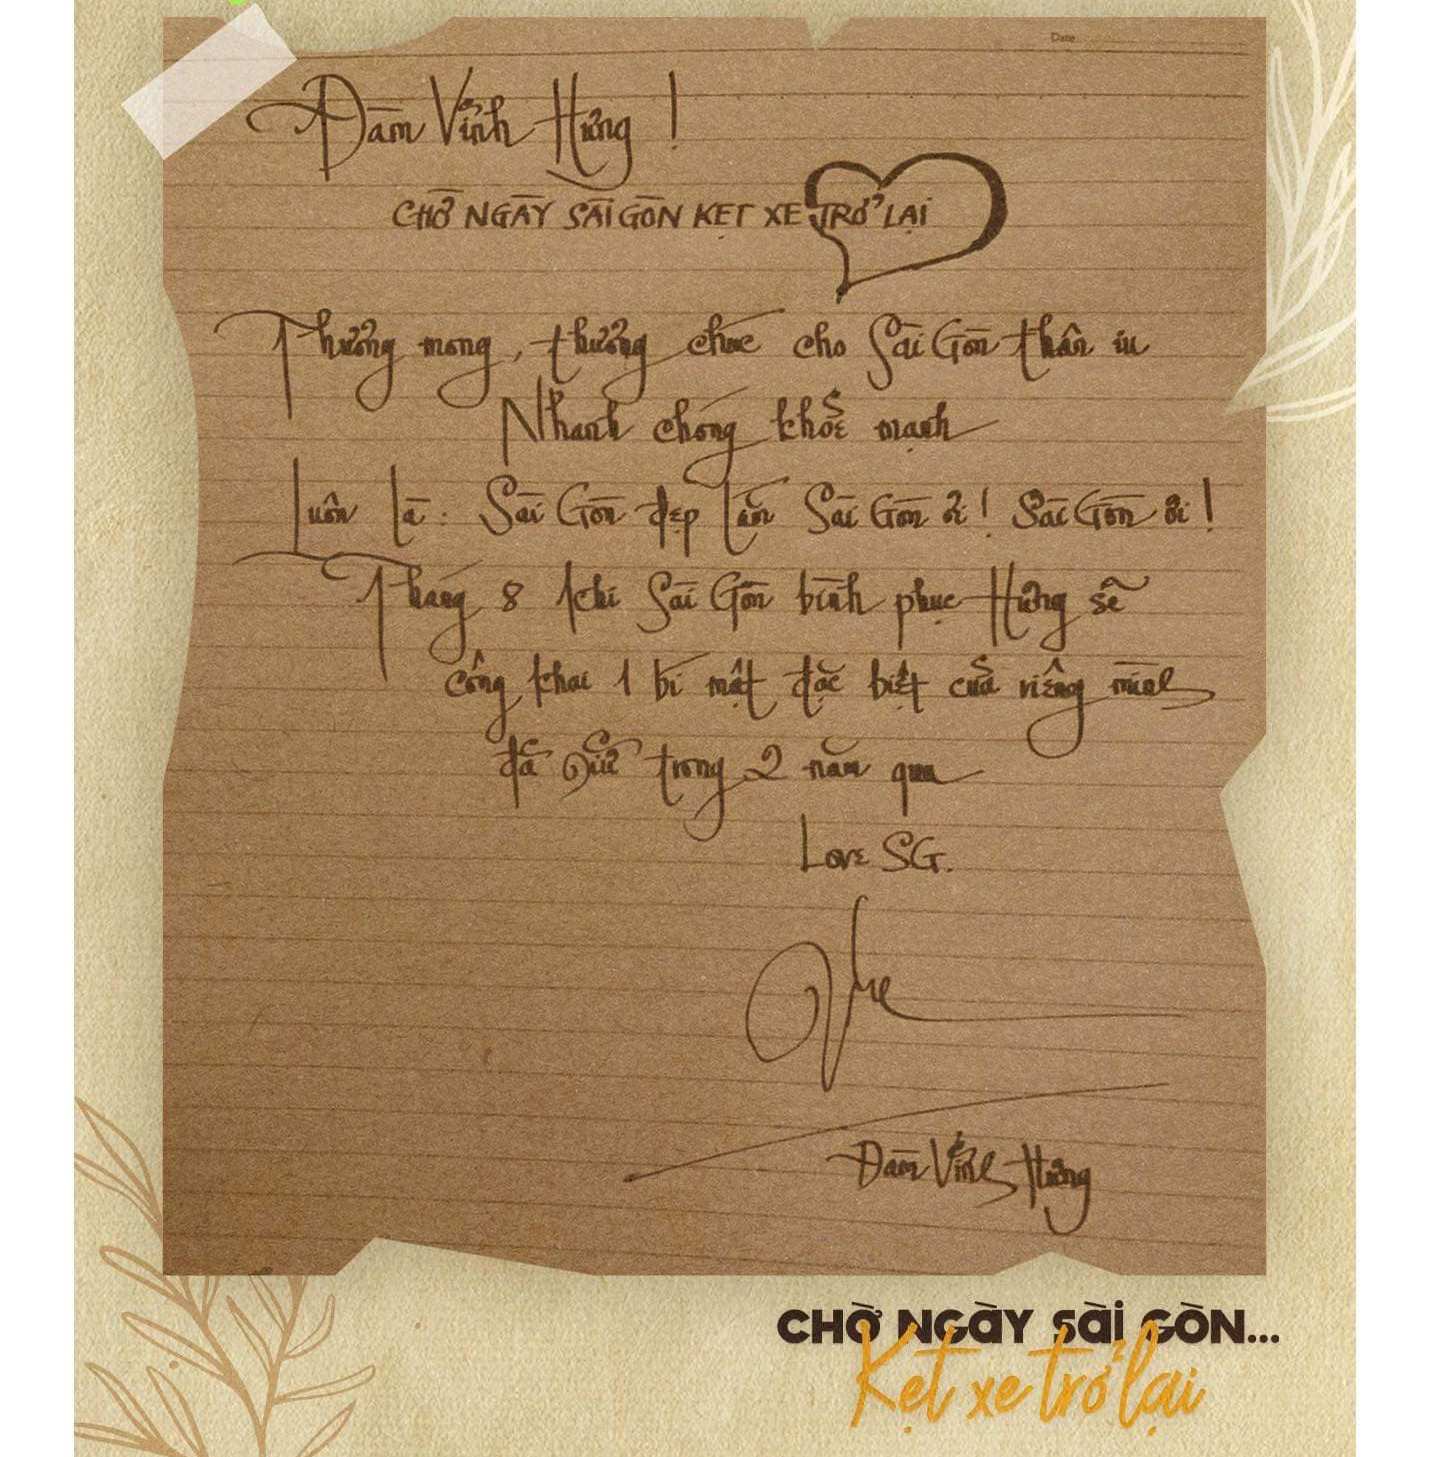 Date
Đàm Vĩnh Hưng !
CHỜ NGÀY SÀI GÒN KẸT XE TRỞ LẠI
Hưng mong, Hưng chúc cho Sài Gòn thân iu
Nhanh chóng khỏe mạnh
Luôn là: Sài Gòn đẹp lắm Sài Gòn ơi! Sài Gòn ơi!
Tháng 8 khi Sài Gòn bình phục Hưng sẽ
công khai 1 bí mật đặc biệt của riêng mình
đã giữ trong 2 năm qua
Love SG.
Đàm Vĩnh Hưng
CHỜ NGÀY SÀI GÒN...
Kẹt xe trở lại